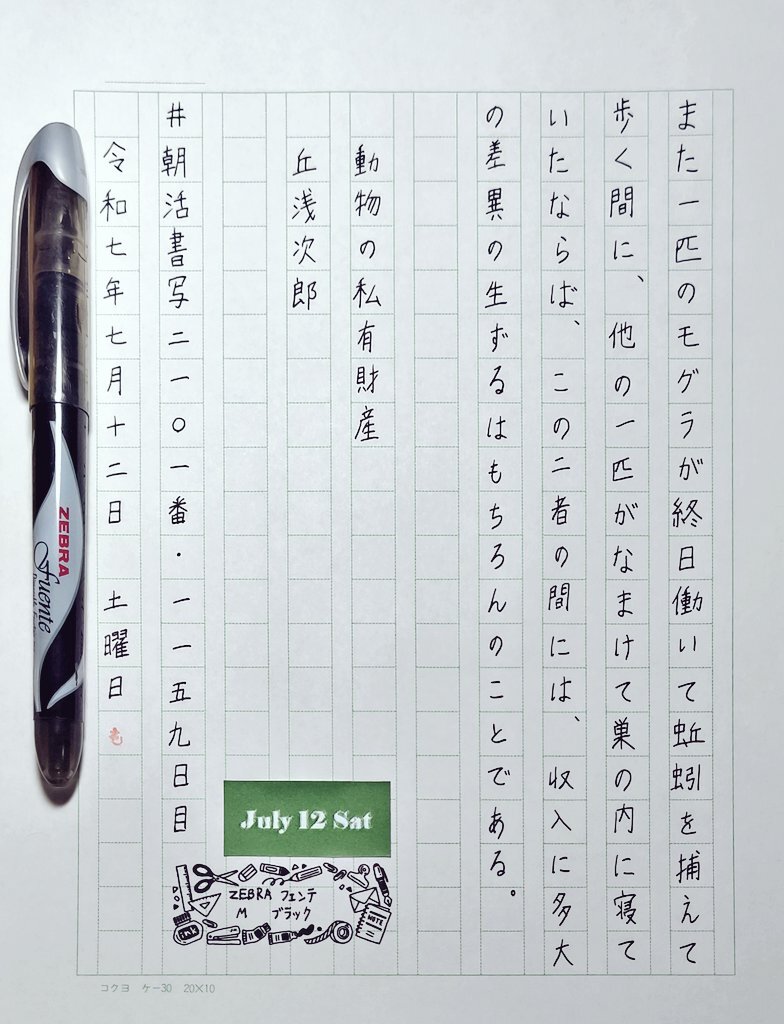 また一匹のモグラが終日働いて蚯蚓を捕えて
歩く間に、他の一匹がなまけて巣の内に寝て
いたならば、この二者の間には、収入に多大
の差異の生ずるはもちろんのことである。
動物の私有財産
丘浅次郎
#朝活書写二一〇一番・一一五九日目
令和七年七月十二日 土曜日
July 12 Sat
ZEBRA フェンテ
M ブラック
NOTE
ZEBRA
Fuente
コクヨ ケー30 20×10